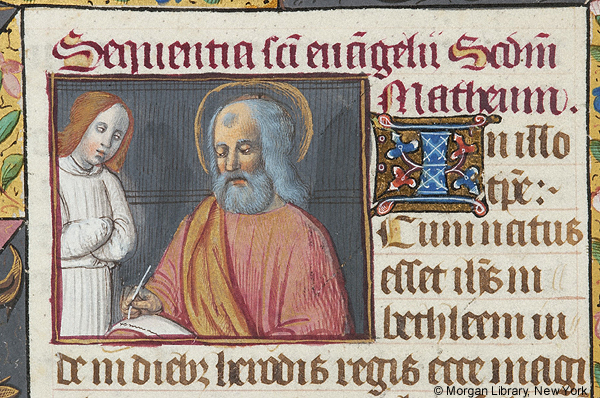 Sequentia sci euãgelii Scdm̄
Matheum.
In illo
tp̄e:
Cum natus
esset ih̄s in
bethleem iu
de in diebꝫ herodis regis ecce magi
© Morgan Library, New York